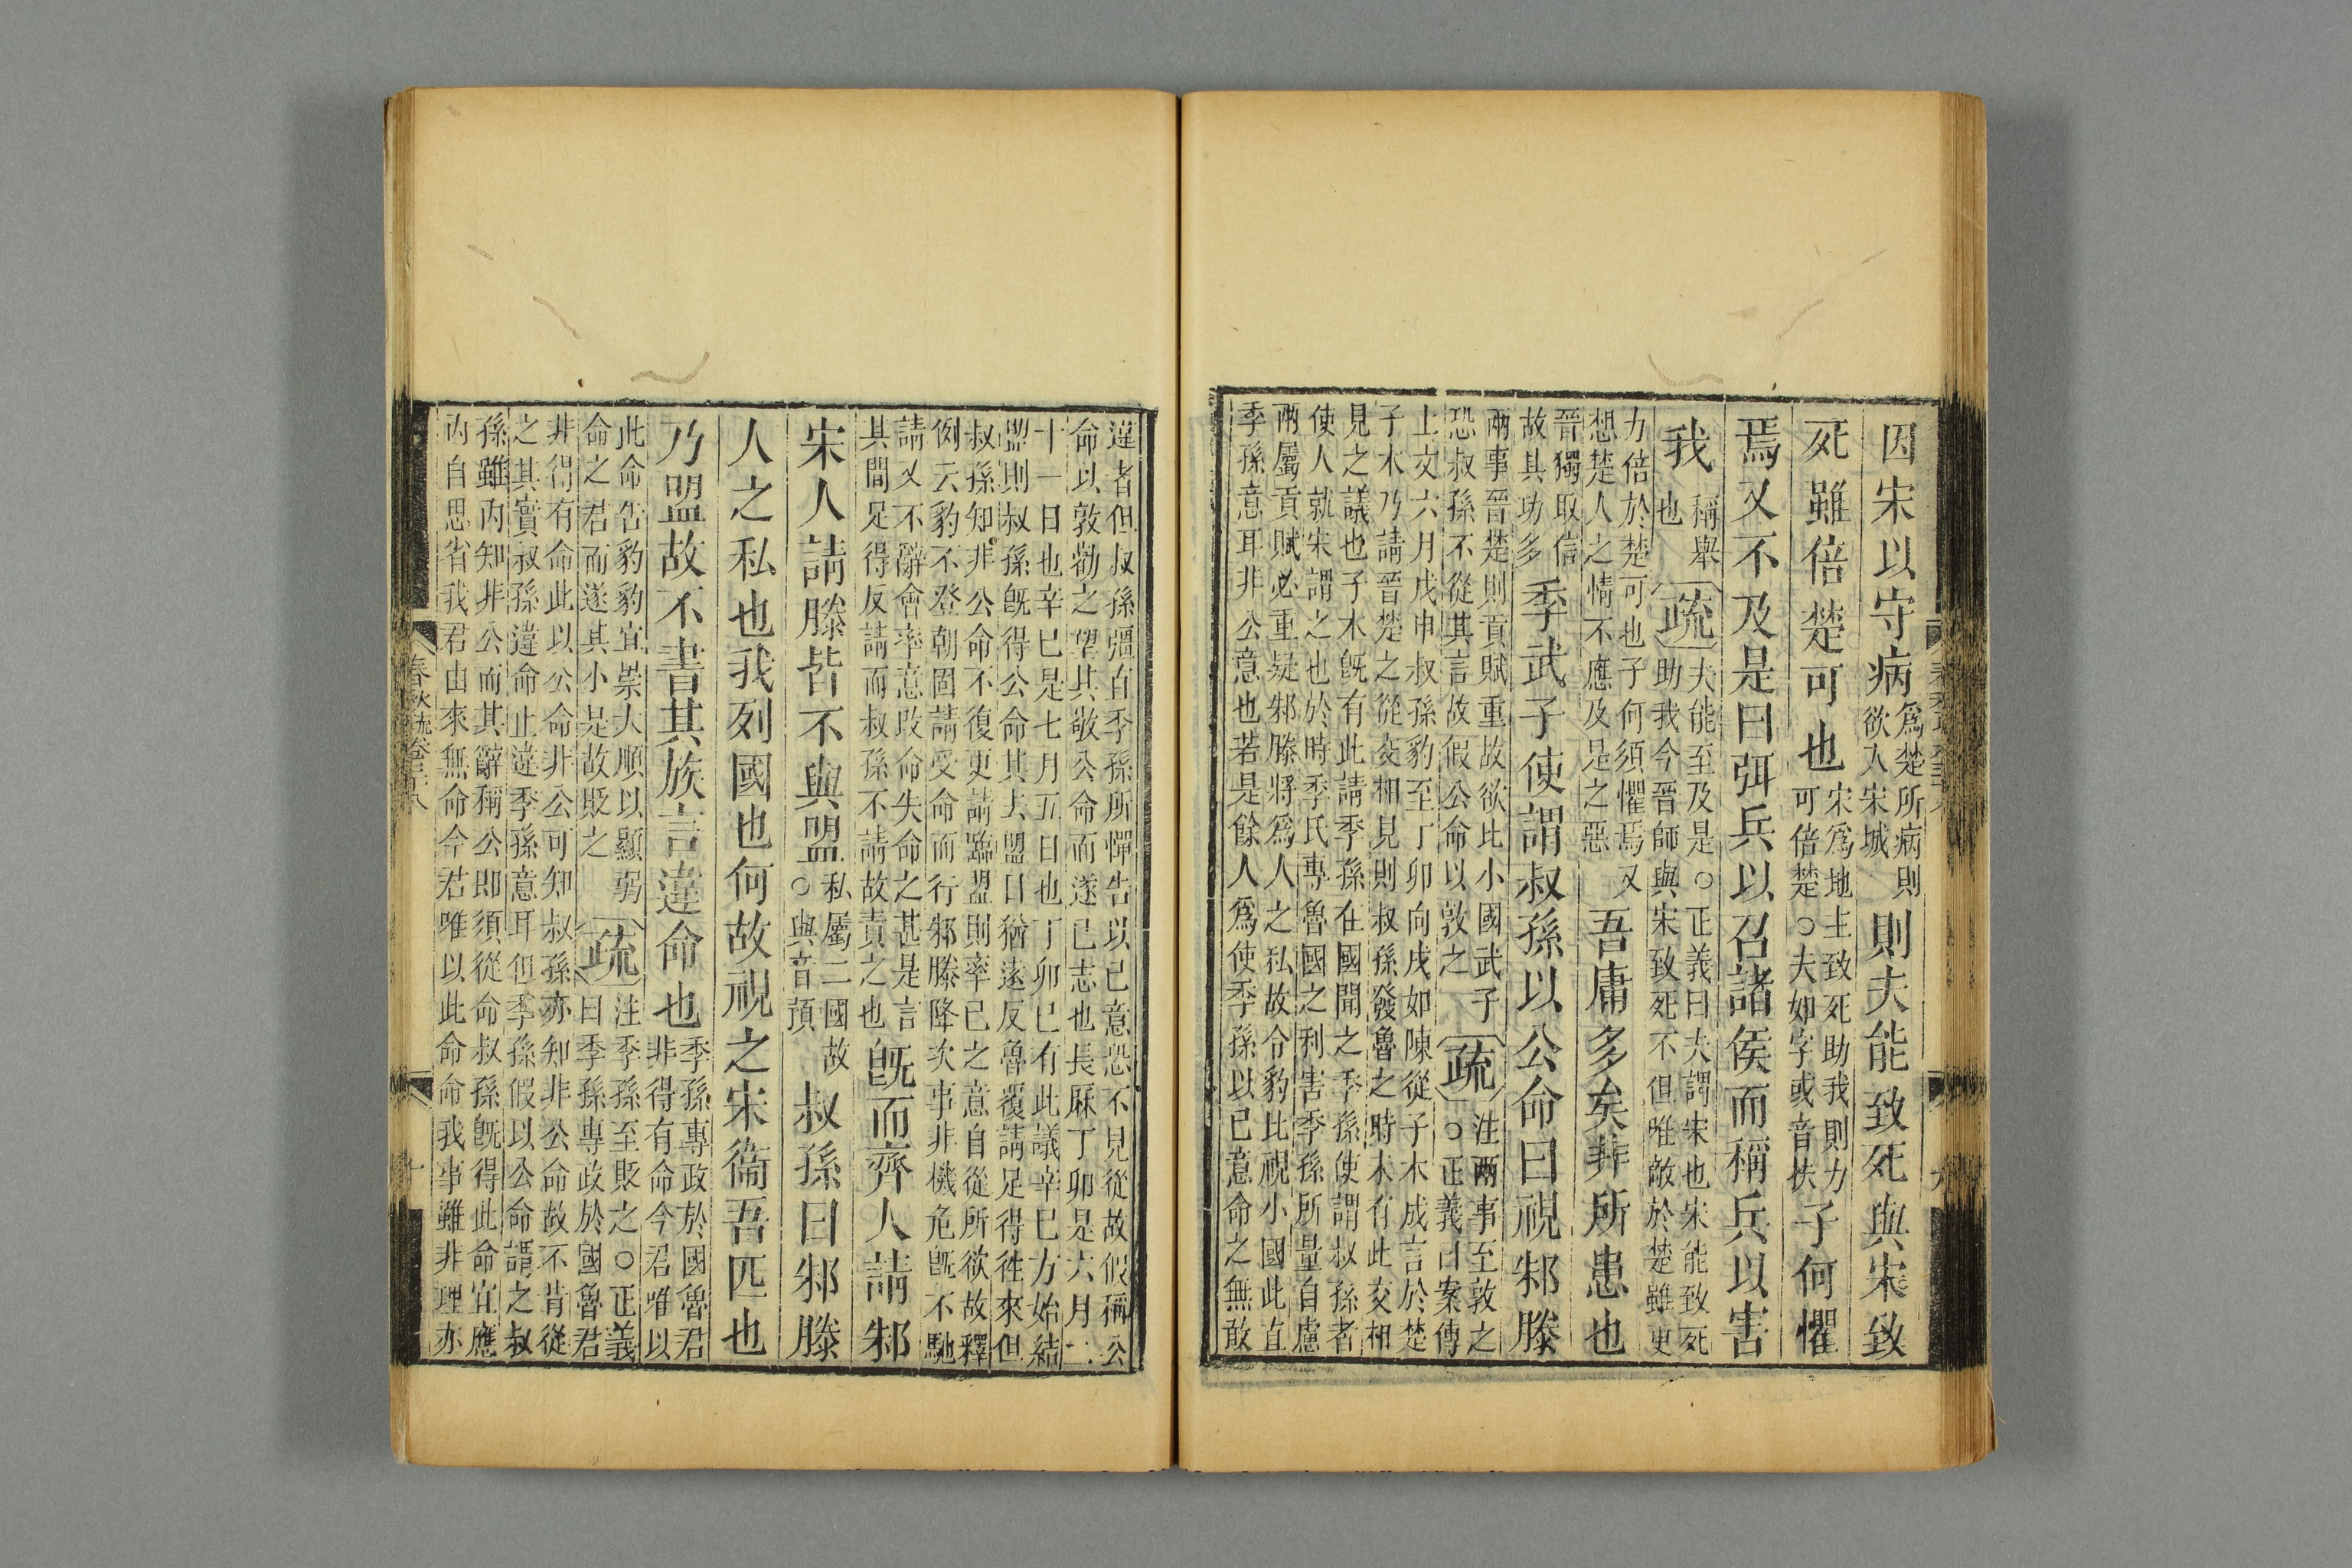 因宋以守病爲楚所病則欲入宋城則夫能致死與宋致
死雖倍楚可也宋爲地主致死助我則力可倍楚○夫如字或音扶子何懼
焉又不及是曰弭兵以召諸侯而稱兵以害
我稱舉也疏夫能至及是○正義曰夫謂宋也宋能致死助我今晉師與宋致死不但唯敵於楚雖更
力倍於楚可也子何須懼焉又想楚人之情不應及是之惡吾庸多矣非所患也
晉獨取信故其功多季武子使謂叔孫以公命曰視邾滕
兩事晉楚則貢賦重故欲比小國武子恐叔孫不從其言故假公命以敦之疏注兩事至敦之○正義曰案傳
上文六月戊申叔孫豹至丁卯向戌如陳從子木成言於楚
子木乃請晉楚之從交相見則叔孫發魯之時未有此交相
見之議也子木旣有此請季孫在國聞之季孫使謂叔孫者
使人就宋謂之也於時季氏專魯國之利害季孫所量自慮
兩屬貢賦必重疑邾滕將爲人之私故令豹比視小國此直
季孫意耳非公意也若是餘人爲使季孫以已意命之無敢
違者但叔孫彊直季孫所憚告以已意恐不見從故假稱公
命以敦勸之望其敬公命而遂已志也長厤丁卯是六月二
十一日也辛巳是七月五日也丁卯已有此議辛巳方始結
盟則叔孫旣得公命其去盟日猶遠反魯覆請足得徃來但
叔孫知非公命不復更請臨盟則率已之意自從所欲故釋
例云豹不登朝固請受命而行邾滕降次事非機危旣不馳
請又不辭會率意改命失命之甚是言其間足得反請而叔孫不請故責之也旣而齊人請邾
宋人請滕皆不與盟私屬二國故○與音預叔孫曰邾滕
人之私也我列國也何故視之宋衞吾匹也
乃盟故不書其族言違命也季孫專政於國魯君非得有命今君唯以
此命告豹豹宜崇大順以顯弱命之君而遂其小是故貶之疏注季孫至貶之○正義曰季孫專政於國魯君
非得有命此以公命非公可知叔孫亦知非公命故不肯從
之其實叔孫違命止違季孫意耳但季孫假以公命謂之叔
孫雖內知非公而其辭稱公即須從命叔孫旣得此命宜應
內自思省我君由來無命今君唯以此命命我事雖非理亦
春秋疏卷三十八
十